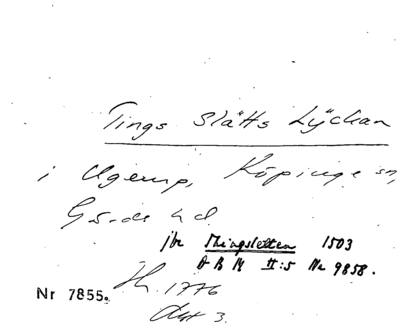 Tings Slätts Lÿckan
i Ugerup, Köpinge sn,
Gärds hd
jbr Thingsletten 1503
A B M II:5 Nr 9858.
1776
Akt 3.
Nr 7855.